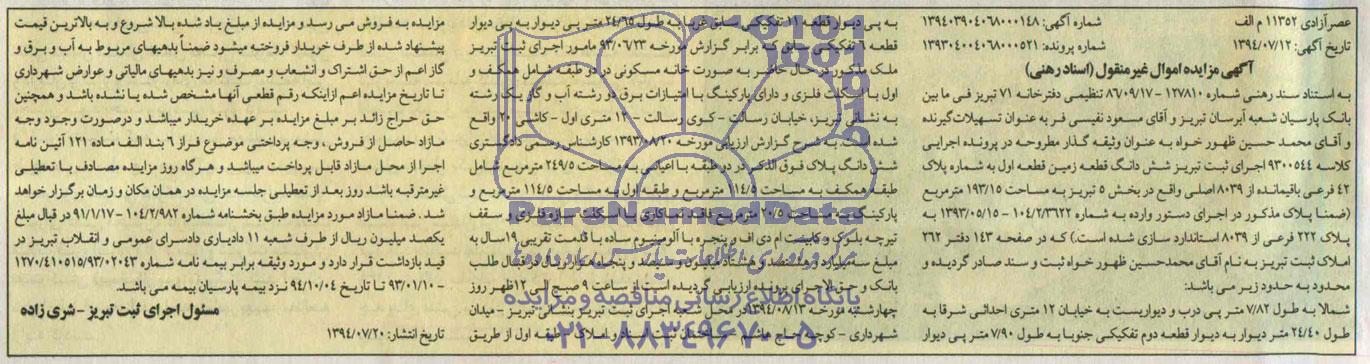 عصرآزادی ۱۱۳۵۲ م الف
شماره آگهی: ۱۳۹۴۰۳۹۰۴۰۶۸۰۰۰۱۴۸
تاریخ آگهی: ۱۳۹۴/۰۷/۱۲
شماره پرونده: ۱۳۹۳۰۴۰۰۴۰۶۸۰۰۰۵۲۱
آگهی مزایده اموال غیر منقول (اسناد رهنی)
به استناد سند رهنی شماره ۱۲۷۸۱۰ - ۸۶/۰۹/۱۷ تنظیمی دفترخانه ۷۱ تبریز فی ما بین
بانک پارسیان شعبه آبرسان تبریز و آقای مسعود نفیسی فر به عنوان تسهیلات‌گیرنده
و آقای محمد حسین ظهور خواه به عنوان وثیقه گذار مطروحه در پرونده اجرایی
کلاسه ۹۳۰۰۵۴۴ اجرای ثبت تبریز شش دانگ قطعه زمین قطعه اول به شماره پلاک
۴۲ فرعی باقیمانده از ۸۰۳۹ اصلی واقع در بخش ۵ تبریز به مساحت ۱۹۳/۱۵ مترمربع
(ضمنا پلاک مذکور در اجرای دستور وارده به شماره ۱۰۴/۲/۳۶۲۲ - ۱۳۹۳/۰۵/۱۵ به
پلاک ۲۲۲ فرعی از ۸۰۳۹ استاندارد سازی شده است.) که در صفحه ۱۴۳ دفتر ۲۶۲
املاک ثبت تبریز به نام آقای محمدحسین ظهور خواه ثبت و سند صادر گردیده و
محدود به حدود زیر می باشد:
شمالا به طول ۷/۸۲ متر پی درب و دیواریست به خیابان ۱۲ متری احداثی شرقا به
طول ۲۴/۴۰ متر دیوار به دیوار قطعه دوم تفکیکی جنوبا به طول ۷/۹۰ متر پی دیوار
به پی دیوار قطعه ۱۱ تفکیکی سابق غربا به طول ۲۴/۶۵ متر پی دیوار به پی دیوار
قطعه ۶ تفکیکی سابق که برابر گزارش مورخه ۹۳/۰۶/۲۳ مامور اجرای ثبت تبریز
ملک مذکور در حال حاضر به صورت خانه مسکونی در دو طبقه شامل همکف و
اول با اسکلت فلزی و دارای پارکینگ با امتیازات برق دو رشته آب و گاز یک رشته
به نشانی تبریز، خیابان رسالت - کوی رسالت - ۱۲ متری اول - کاشی ۲۰ واقع
شده است. به شرح گزارش ارزیابی مورخه ۱۳۹۳/۰۸/۲۰ کارشناس رسمی دادگستری
شش دانگ پلاک فوق الذکر در دو طبقه با اعیانی به مساحت ۲۴۹/۵ مترمربع شامل
طبقه همکف به مساحت ۱۱۴/۵ مترمربع و طبقه اول به مساحت ۱۱۴/۵ مترمربع و
پارکینگ به مساحت ۲۰/۵ مترمربع فاقد نماکاری با اسکلت سازه فلزی و سقف
تیرچه بلوک و کابینت ام دی اف و پنجره با آلومینیوم ساده با قدمت تقریبی ۱۹ سال به
مبلغ سه میلیارد و هشتصد و هشتاد میلیون و ششصد و پنجاه هزار ریال در قبال طلب
بانک و حق الاجرای پرونده ارزیابی گردیده است از ساعت ۹ صبح الی ۱۲ ظهر روز
چهارشنبه مورخه ۱۳۹۴/۰۸/۱۳ در محل شعبه اجرای ثبت تبریز بنشانی تبریز - میدان
شهرداری - کوچه حاج هاشم ساختمان ثبت اسناد و املاک - طبقه اول از طریق
مزایده به فروش می رسد و مزایده از مبلغ یاد شده بالا شروع و به بالاترین قیمت
پیشنهاد شده از طرف خریدار فروخته میشود ضمناً بدهیهای مربوط به آب و برق و
گاز اعم از حق اشتراک و انشعاب و مصرف و نیز بدهیهای مالیاتی و عوارض شهرداری
تا تاریخ مزایده اعم ازاینکه رقم قطعی آنها مشخص شده یا نشده باشد و همچنین
حق حراج زائد بر مبلغ مزایده بر عهده خریدار میباشد و درصورت وجود وجه
مازاد حاصل از فروش، وجه پرداختی موضوع فراز ۶ بند الف ماده ۱۲۱ آئین نامه
اجرا از محل مازاد قابل پرداخت میباشد و هرگاه روز مزایده مصادف با تعطیلی
غیرمترقبه باشد روز بعد از تعطیلی جلسه مزایده در همان مکان و زمان برگزار خواهد
شد. ضمنا مازاد مورد مزایده طبق بخشنامه شماره ۱۰۴/۲/۹۸۲ - ۹۱/۱/۱۷ در قبال مبلغ
یکصد میلیون ریال از طرف شعبه ۱۱ دادیاری دادسرای عمومی و انقلاب تبریز در
قید بازداشت قرار دارد و مورد وثیقه برابر بیمه نامه شماره ۱۲۷۰/۴۱۰۵۱۵/۹۳/۰۲۰۴۳
- ۹۳/۰۱/۱۰ تا تاریخ ۹۴/۱۰/۰۴ نزد بیمه پارسیان بیمه می باشد.
مسئول اجرای ثبت تبریز - شری زاده
تاریخ انتشار: ۱۳۹۴/۰۷/۲۰
ParsNamadData
پایگاه اطلاع رسانی مناقصه و مزایده
۰۲۱-۸۸۳۴۹۶۷۰-۵